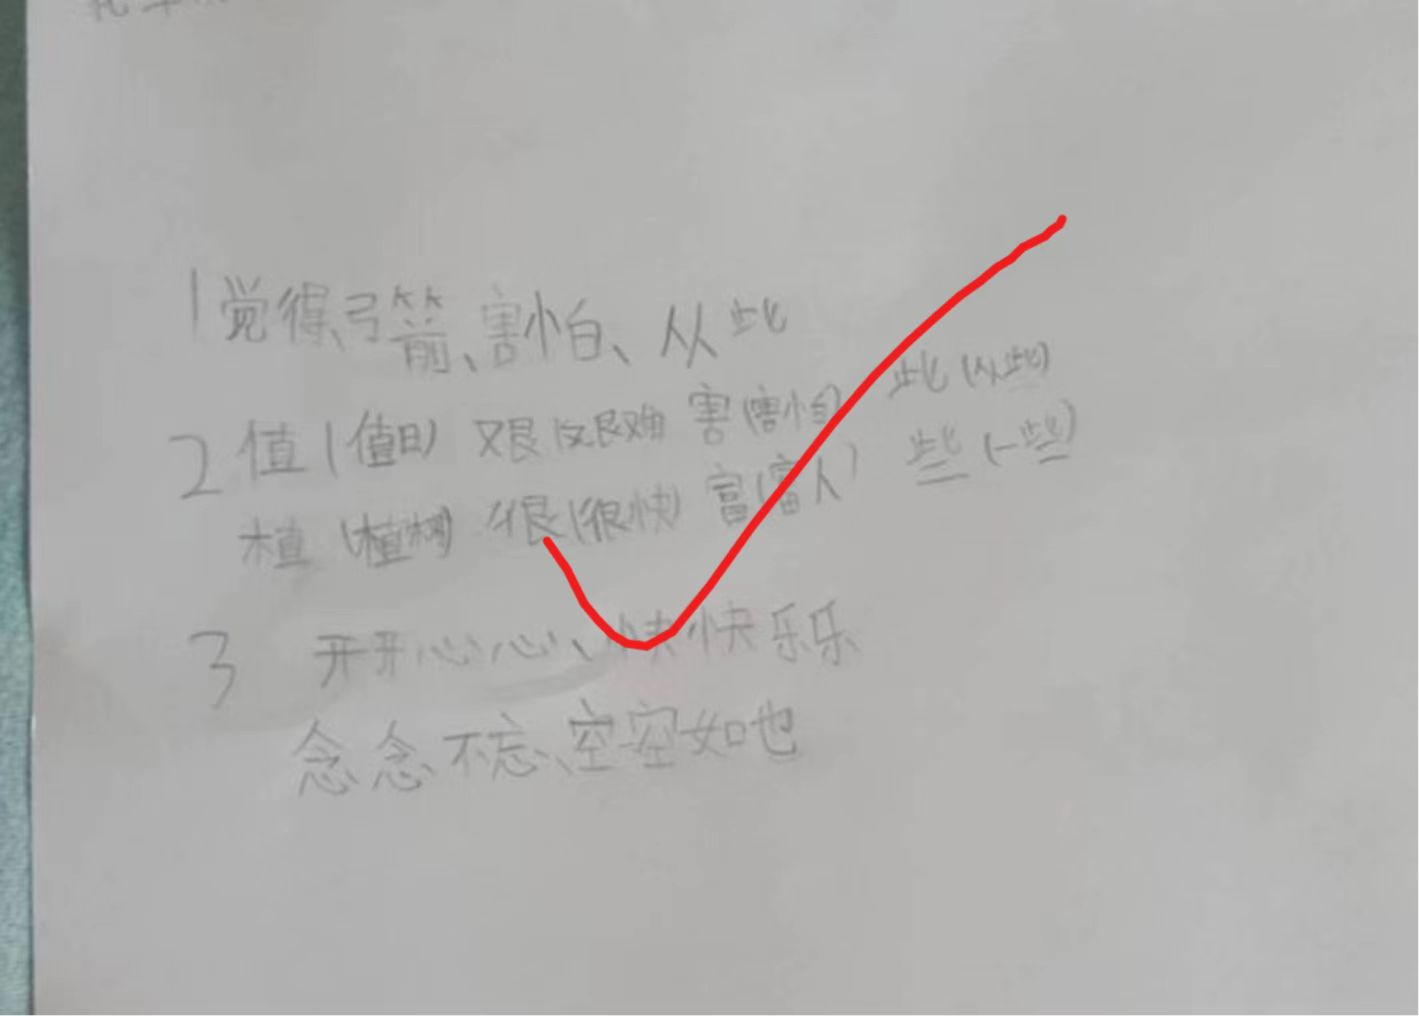 1觉得、弓箭、害怕、从此
2 值(值日) 艰(艰难 害(害怕) 此(从此)
植(植树) 很(很快) 富(富人) 些(一些)
3 开开心心、快快乐乐
念念不忘、空空如也